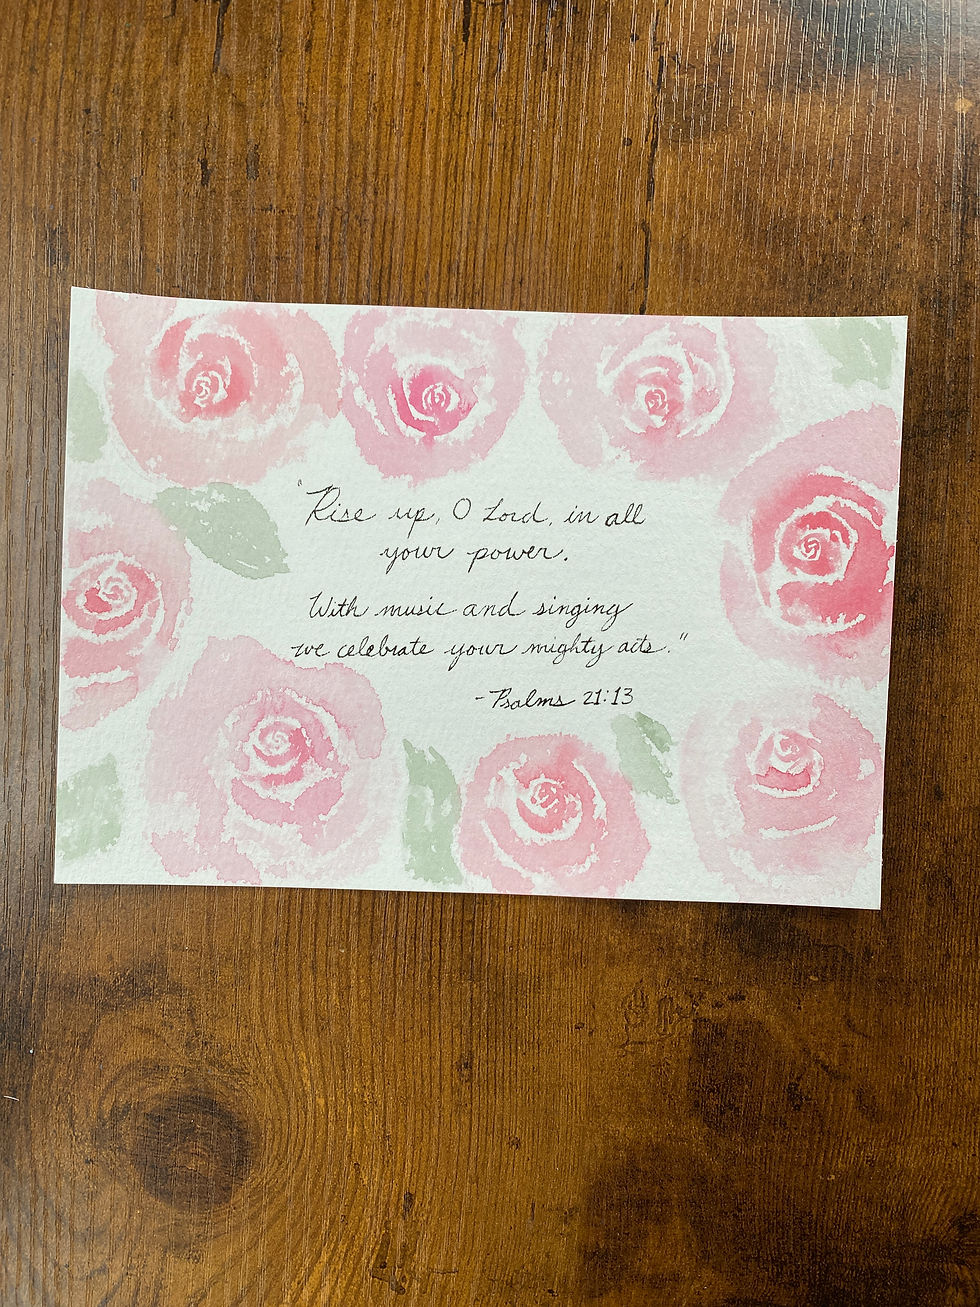 "Rise up, O Lord, in all
your power.
With music and singing
we celebrate your mighty acts."
-Psalms 21:13